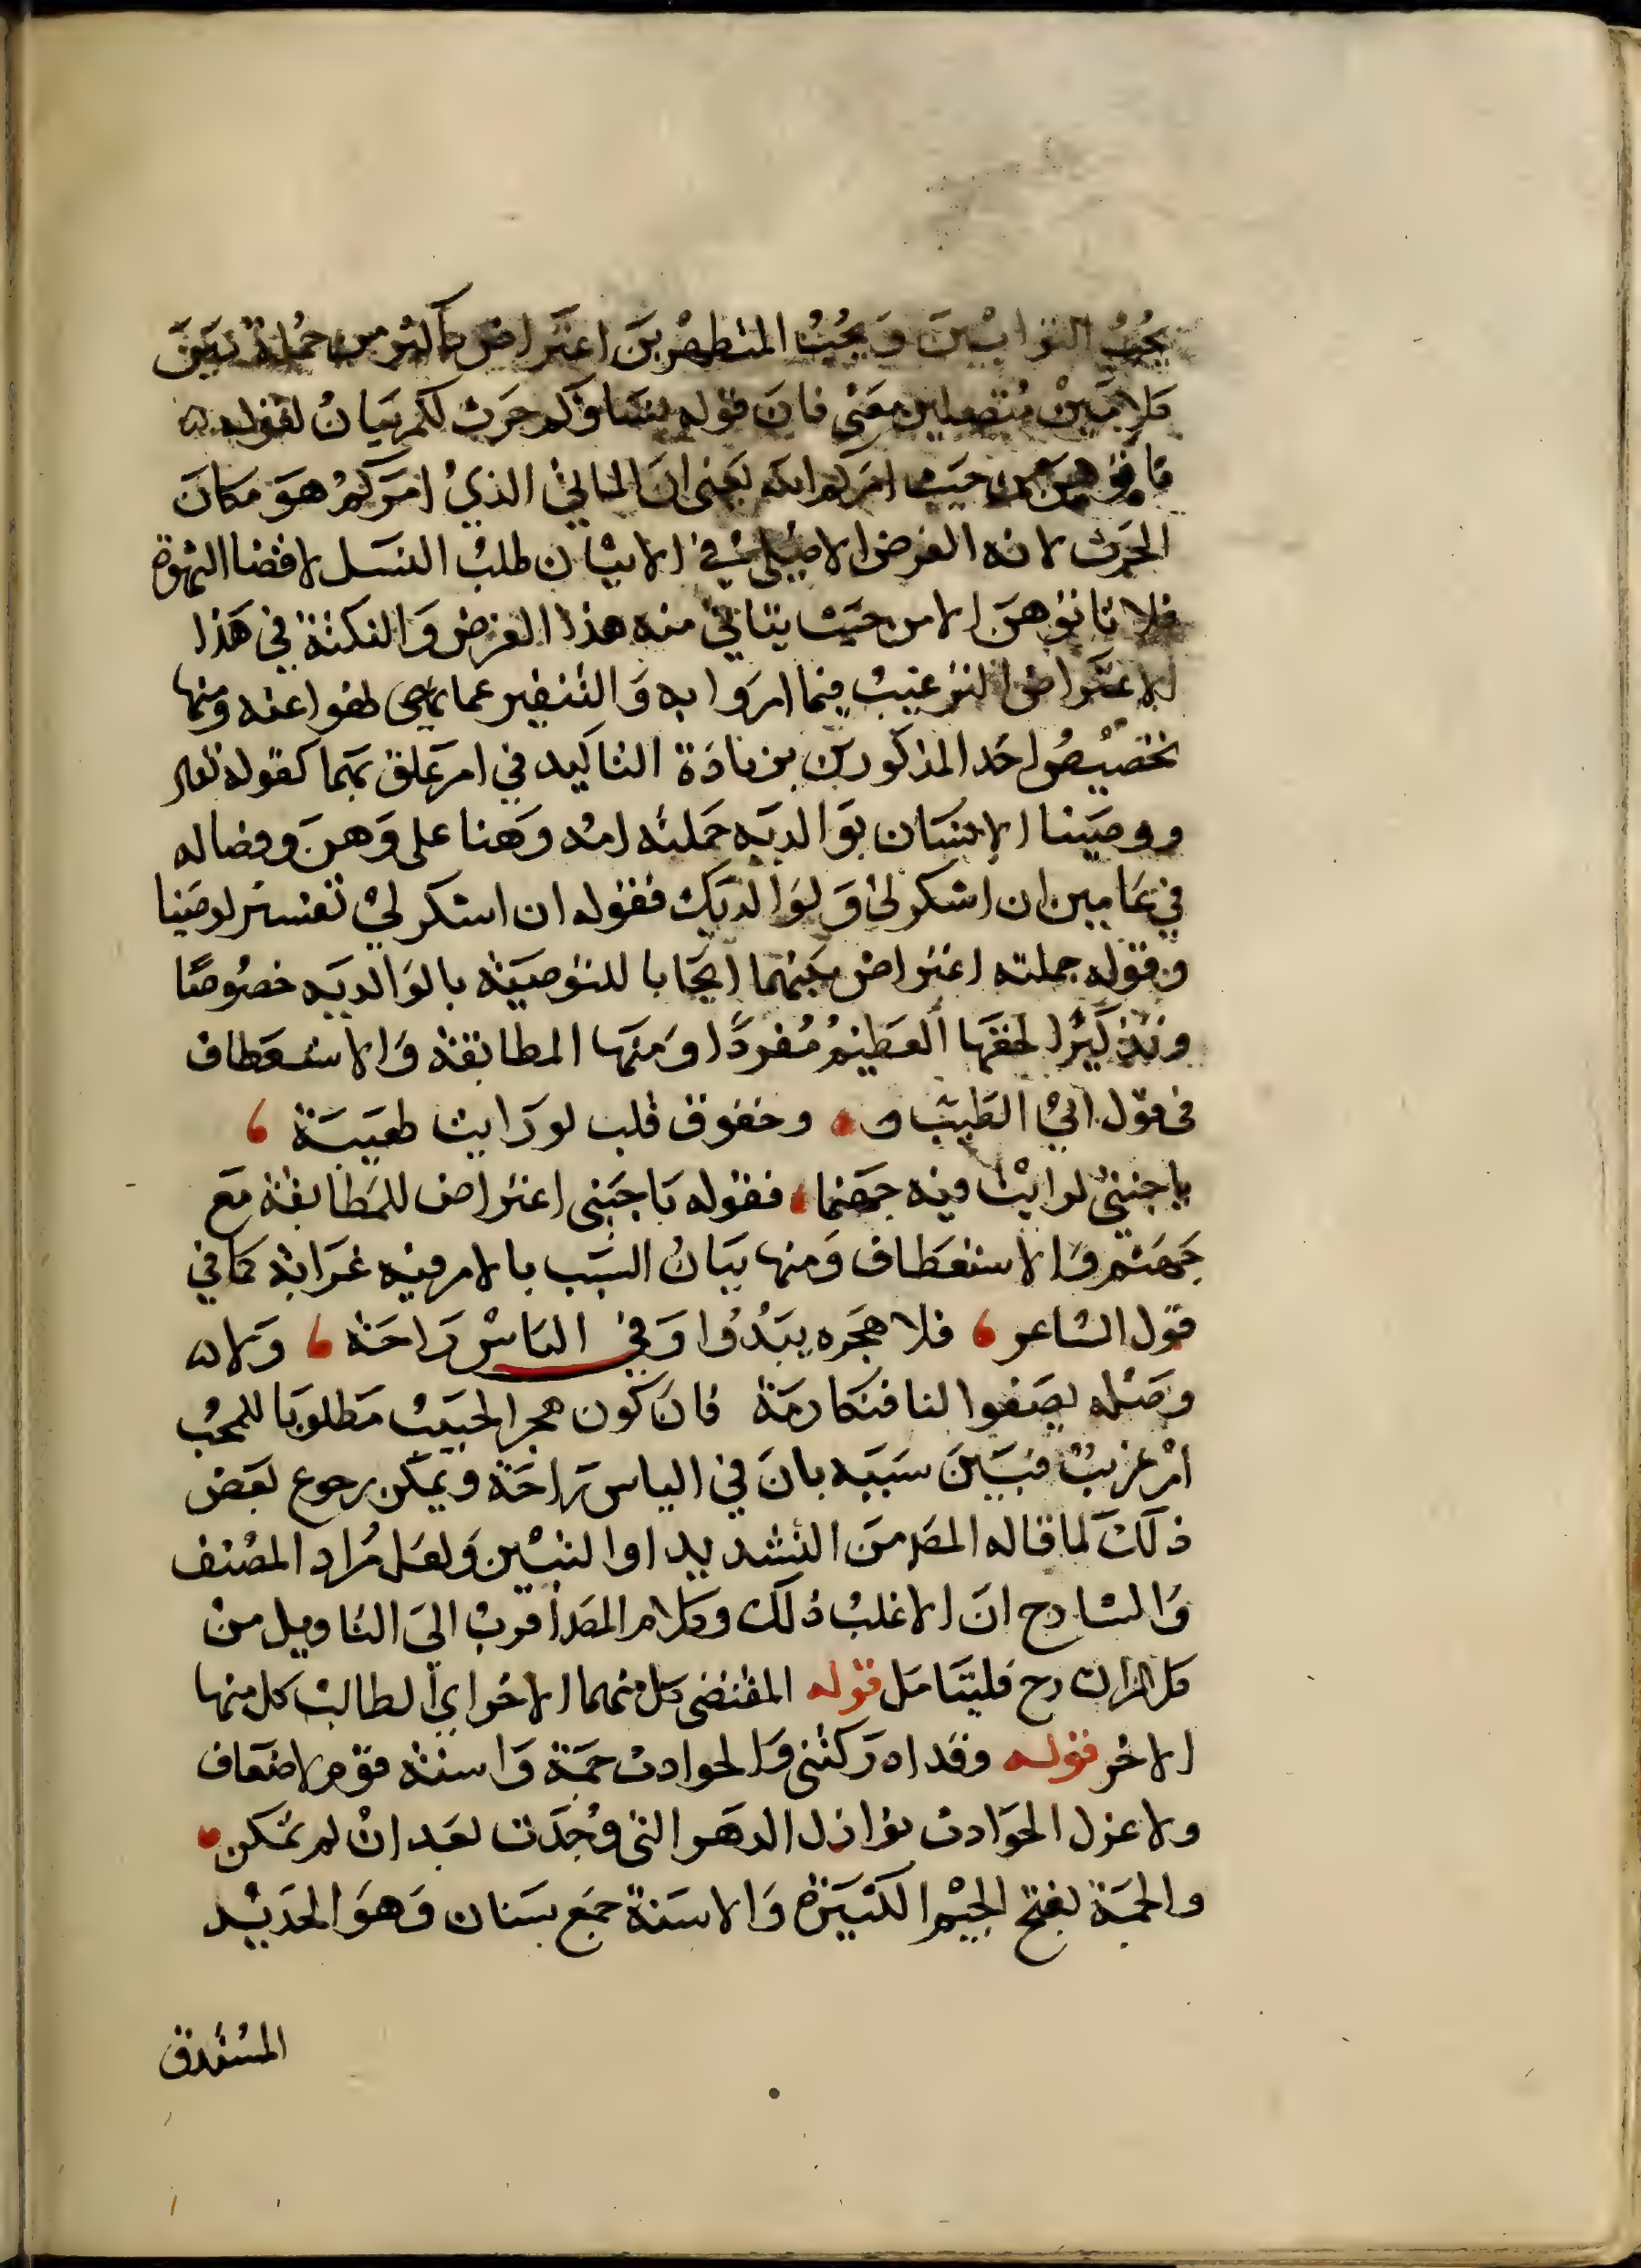 يحب التوابين ويحب المتطهرين اعتراض باكثر من جملة بين
كلامين متصلين معنى فان قوله نساوكم حرث لكم بيان لقوله
فاتوهن من حيث امركم الله يعنى ان الماتي الذي امركم هو مكان
الحرث لانه الغرض الاصلي في الاتيان طلب النسل لا قضا الشهوة
فلا تاتوهن الا من حيث يتاتي منه هذا الغرض والنكتة في هذا
الاعتراض الترغيب فيما امروا به والتنفير عما نهى
تخصيص احد المذكورين بزيادة التاكيد في امر علق بهما كقوله تعالى
ووصينا الانسان بوالديه حملته امه وهنا على وهن وفصاله
في عامين ان اشكر لي ولوالديك فقوله ان اشكر لي تفسير لوصينا
وقوله حملته اعتراض بينهما ايجابا للتوصية بالوالديه خصوصا
وتذكيرا لحقها العظيم مفردا ومنها المطابقة والاستعطاف
فى قول ابي الطيب وخفوق قلب لو رايت لهيبة
يا جنتي لرايت فيه جهنما فقوله يا جنتى اعتراض للمطابقة مع
جهنم والاستعطاف ومنها بيان السبب بالامر فيه غرابة كما في
قول الشاعر فلا هجره يبدوا وفي الياس راحة ولا
وصله يصفوا لنا فنكارمة فان كون هجر الحبيب مطلوبا للمحب
امر غريب فبين سببه بان في الياس راحة ويمكن رجوع بعض
ذلك لما قاله المصـ من التشديد او التبيين ولعل مراد المصنف
والشارح ان الاغلب ذلك وكلام المصـ اقرب الى التاويل من
كلام الشارح فليتامل قوله المقتضى كل منهما الاخر اي الطالب كل منها
الاخر قوله وقد ادركتنى والحوادث جمة واسنة قوم لا ضعاف
ولا عزل الحوادث نوازل الدهر التى وجدت بعد ان لم تكن
والجمة بفتح الجيم الكثيرة والاسنة جمع سنان وهو الحديد
المستدق